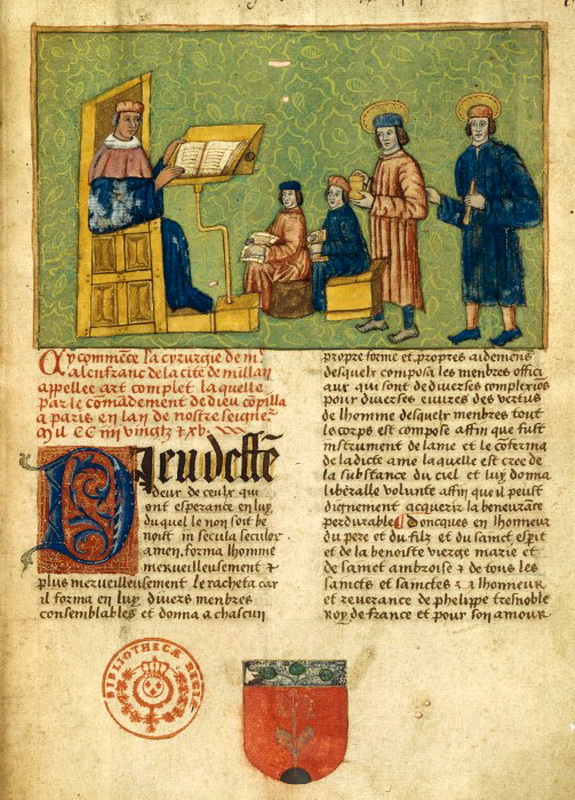 Cy commēce la cyrurgie de mͬ
alenfranc de la cite de millan
appellee art complet laquelle
par le comādement de dieu cōpilla
a paris en lan de nostre seignēͬ
Mil CC iiii vingtz & xv.
Dieu deffē
deur de ceulx qui
ont esperance en luy
du quel le non soit be
noist in secula seculoꝝ
amen, forma lhomme
merueilleusement &
plus merueilleusement le racheta car
il forma en luy diuers menbres
consemblables et donna a chascun
propre forme et propres aidemens
desquelx composa les menbres offici
aux qui sont de diuerses complexiōs
pour diuerses euures des vertus
de lhomme desquelx menbres tout
le corps est compose affin que fust
instrument de lame et le cōferma
de ladicte ame laquelle est cree de
la substance du ciel et luy donna
liberalle volunte affin que il peust
dignement acquerir la beneurāce
perdurable Doncques en lhonneur
du pere et du filz et du sainct esp̄it
et de la benoiste vierge marie et
de sainct ambroise & de tous les
saincts et sainctes & a lhonneur
et reuerance de phelippe tresnoble
Roy de france et pour son amour
BIBLIOTHECÆ REGIÆ